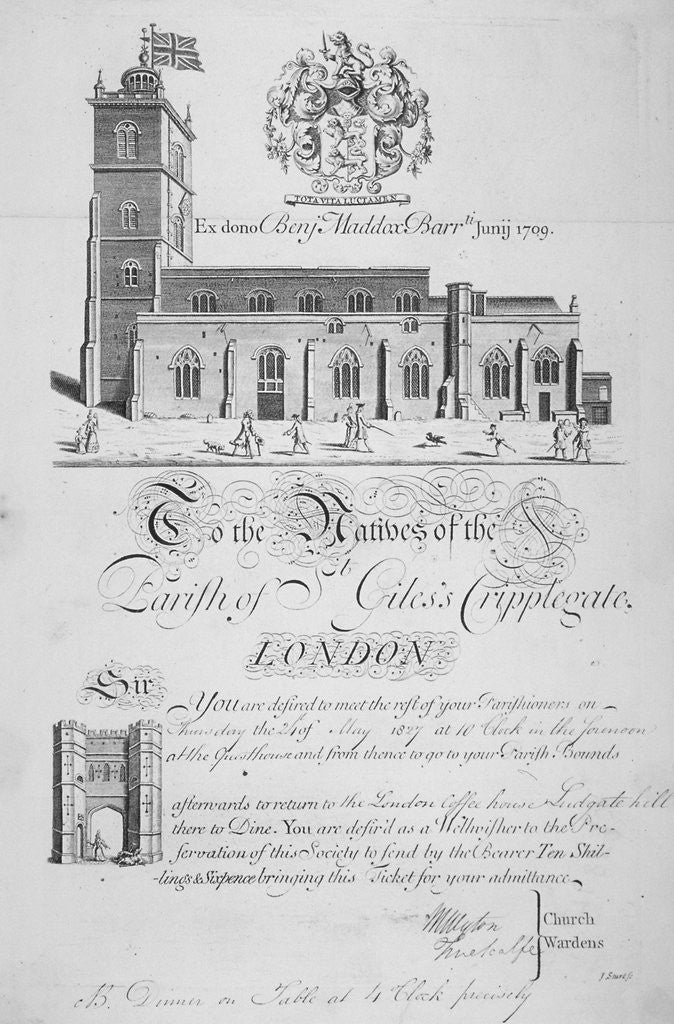 TOTA VITA LUCTAMEN
Ex dono Benj Maddox Barr.ti Junij 1709.
To the Natives of the
Pariſh of St Giles's Cripplegate.
LONDON
Sir
YOU are deſired to meet the reſt of your Pariſhioners on
Thursday the 24 of May 1827 at 10 Clock in the forenoon
at the Questhouse and from thence to go to your Pariſh Bounds
afterwards to return to the London Coffee house Ludgate hill
there to Dine. You are deſir'd as a Wellwiſher to the Pre-
ſervation of this Society to ſend by the Bearer Ten Shil-
-lings & Sixpence bringing this Ticket for your admittance
Church
Wardens
J. Sturt ſc
NB. Dinner on Table at 4 Clock precisely